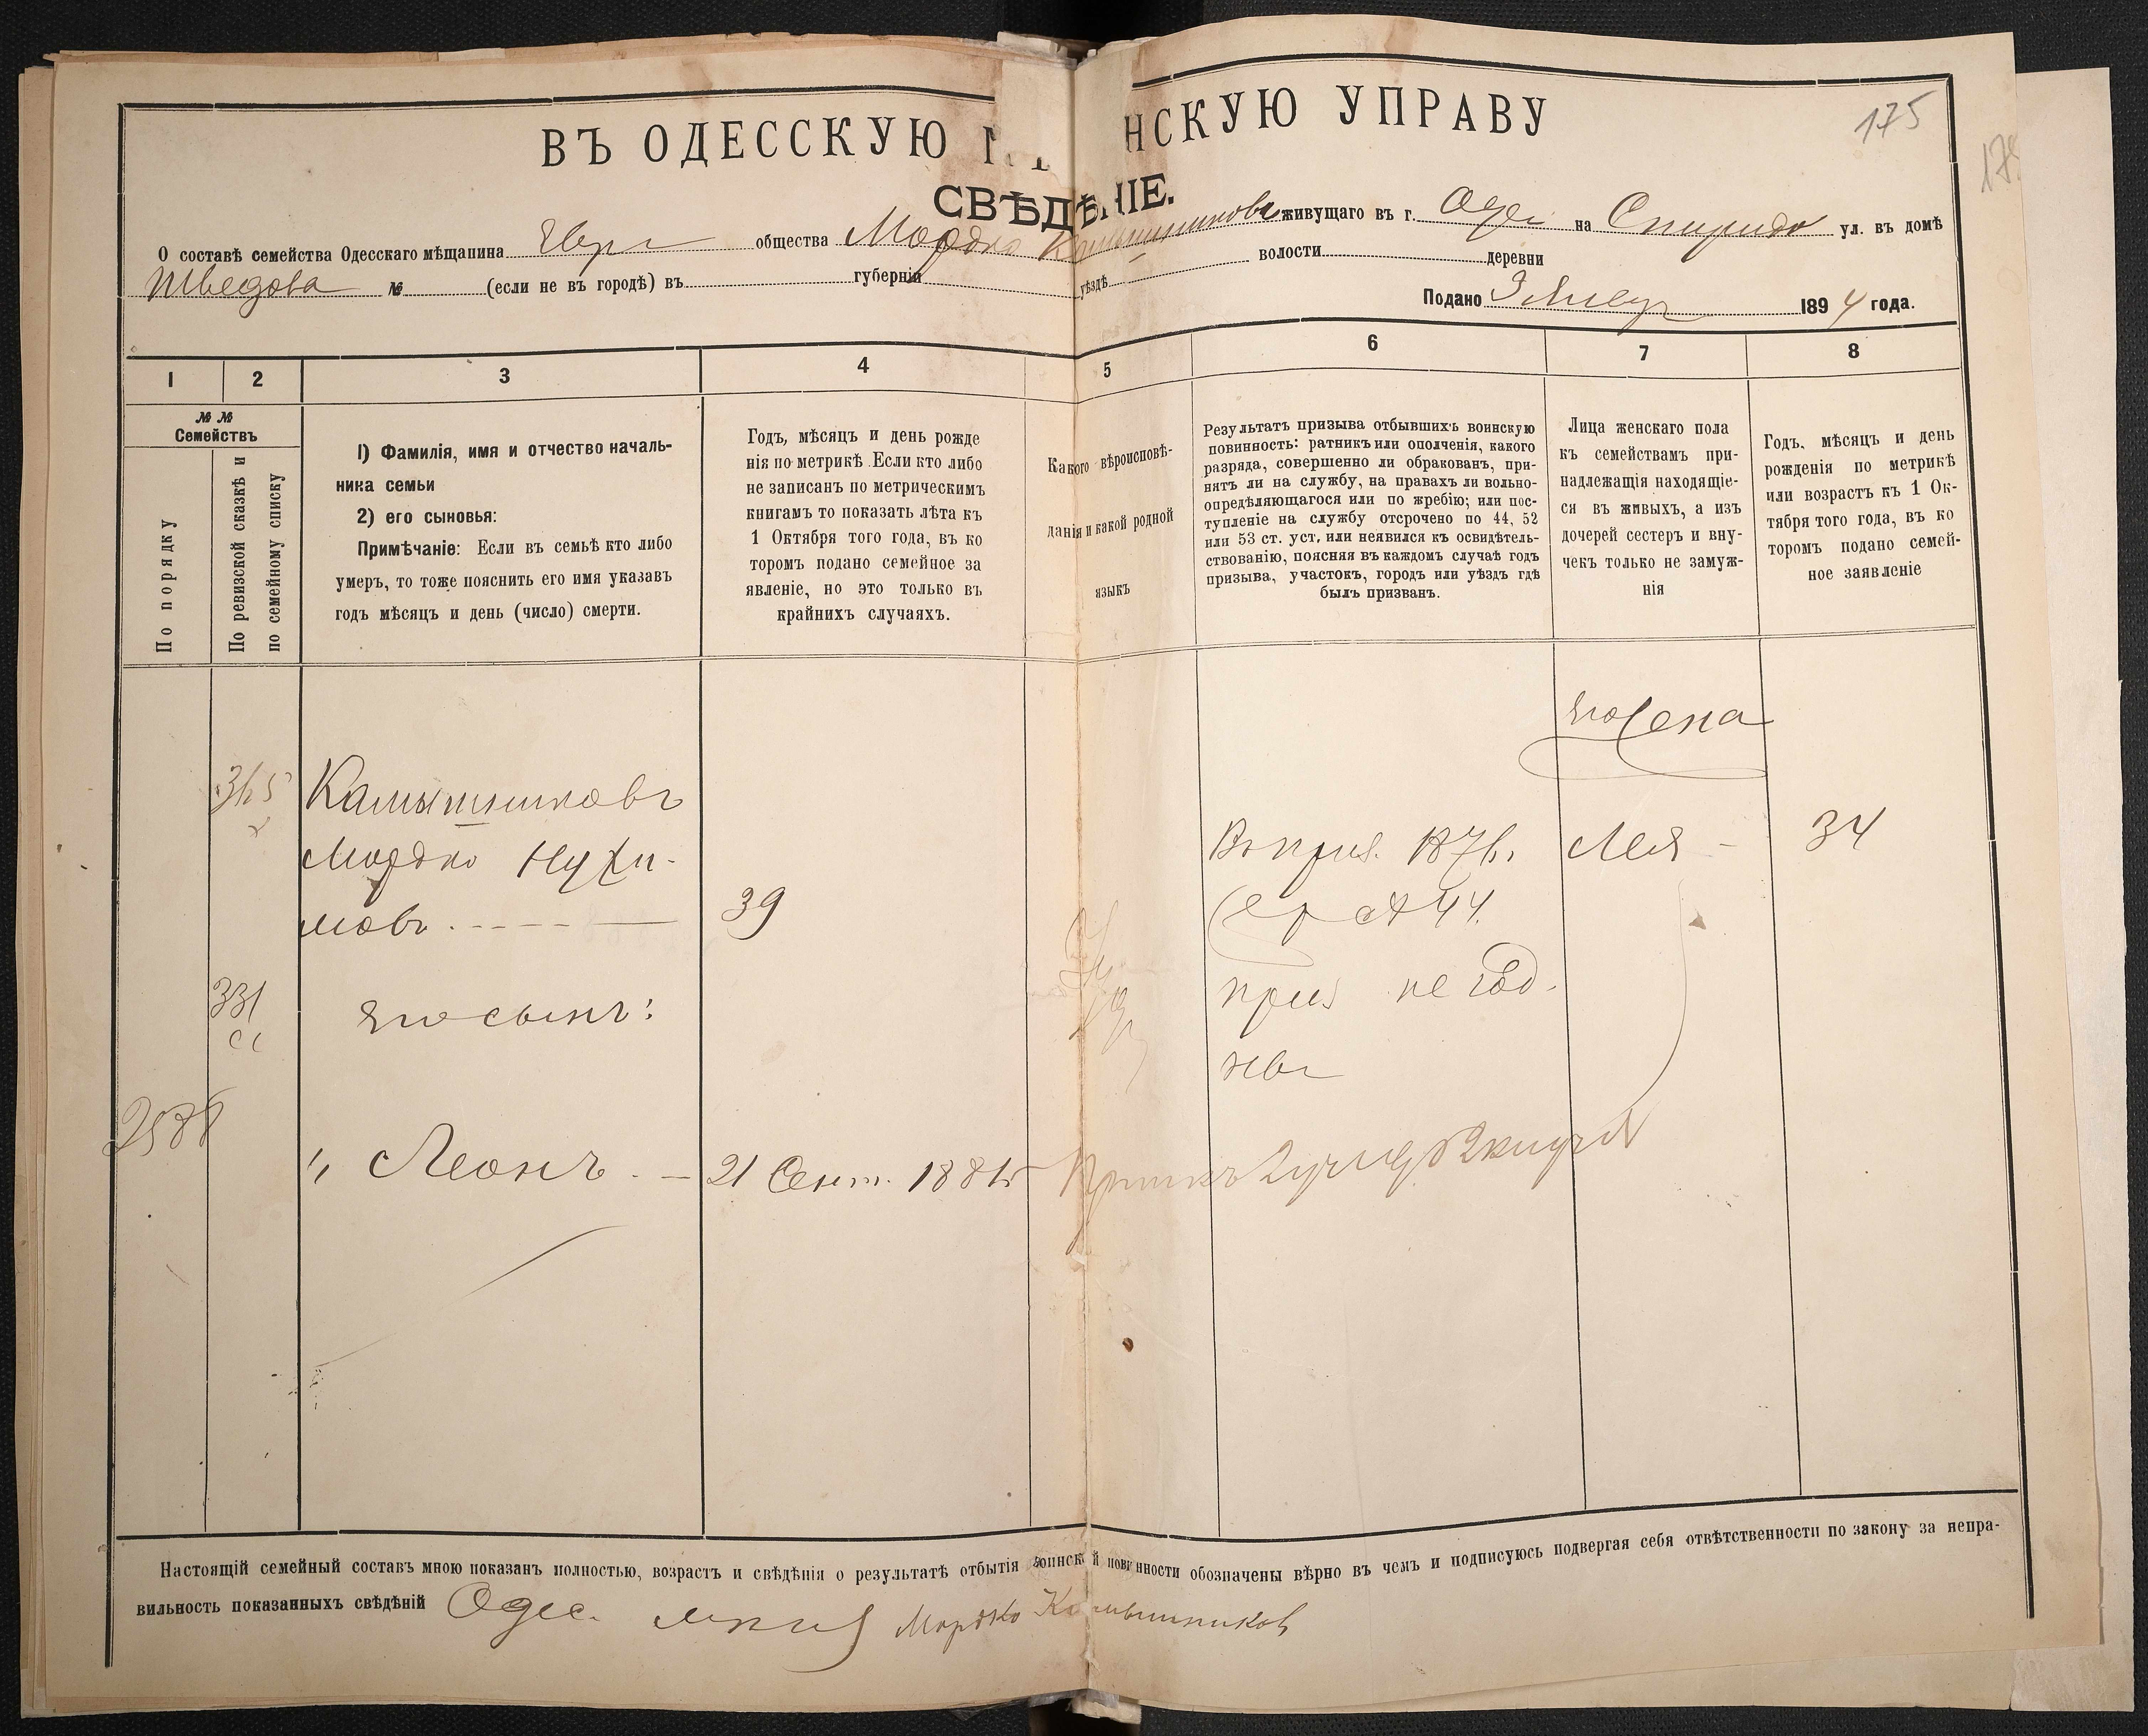 175
ВЪ ОДЕССКУЮ М НСКУЮ УПРАВУ
СВѢДѢНІЕ.
О составѣ семейства Одесскаго мѣщанина Евр общества Мордко Камышникова живущаго въ г. Одес на Спиридо ул. въ домѣ
Шведова № (если не въ городѣ) въ губерніи уѣздѣ волости деревни
Подано 3 Январ 1894 года.
1 2 3 4 5 6 7 8
№ №
Семействъ
По порядку
По ревизской сказкѣ и
по семейному списку
1) Фамилія, имя и отчество началь-
ника семьи
2) его сыновья:
Примѣчаніе: Если въ семьѣ кто либо
умеръ, то тоже пояснить его имя указавъ
годъ мѣсяцъ и день (число) смерти.
Годъ, мѣсяцъ и день рожде
нія по метрикѣ. Если кто либо
не записанъ по метрическимъ
книгамъ то показать лѣта къ
1 Октября того года, въ ко
торомъ подано семейное за
явленіе, но это только въ
крайнихъ случаяхъ.
Какого вѣроисповѣ-
данія и какой родной
языкъ
Результатъ призыва отбывшихъ воинскую
повинность: ратникъ или ополченія, какого
разряда, совершенно ли обракованъ, при-
нятъ ли на службу, на правахъ ли вольно-
опредѣляющагося или по жребію; или пос-
тупленіе на службу отсрочено по 44, 52
или 53 ст. уст, или неявился къ освидѣтель-
ствованію, поясняя въ каждомъ случаѣ годъ
призыва, участокъ, городъ или уѣздъ гдѣ
былъ призванъ.
Лица женскаго пола
къ семействамъ при-
надлежащія находящіе-
ся въ живыхъ, а изъ
дочерей сестеръ и вну-
чекъ только не замуж-
нія
Годъ, мѣсяцъ и день
рожденія по метрикѣ
или возрастъ къ 1 Ок-
тября того года, въ ко
торомъ подано семей-
ное заявленіе
его жена
Камышниковъ
Мордко Нухи-
мовъ 39
Въ приз. 1876.
ст 44.
приз не год-
нвъ
Лея - 34
331
его сынъ:
" Леонъ. — 21 Сент. 1881
Настоящій семейный составъ мною показанъ полностью, возрастъ и свѣдѣнія о результатѣ отбытія воинской повинности обозначены вѣрно въ чемъ и подписуюсь подвергая себя отвѣтственности по закону за непра-
вильность показанныхъ свѣдѣній Одес. мѣщ Мордко Камышников